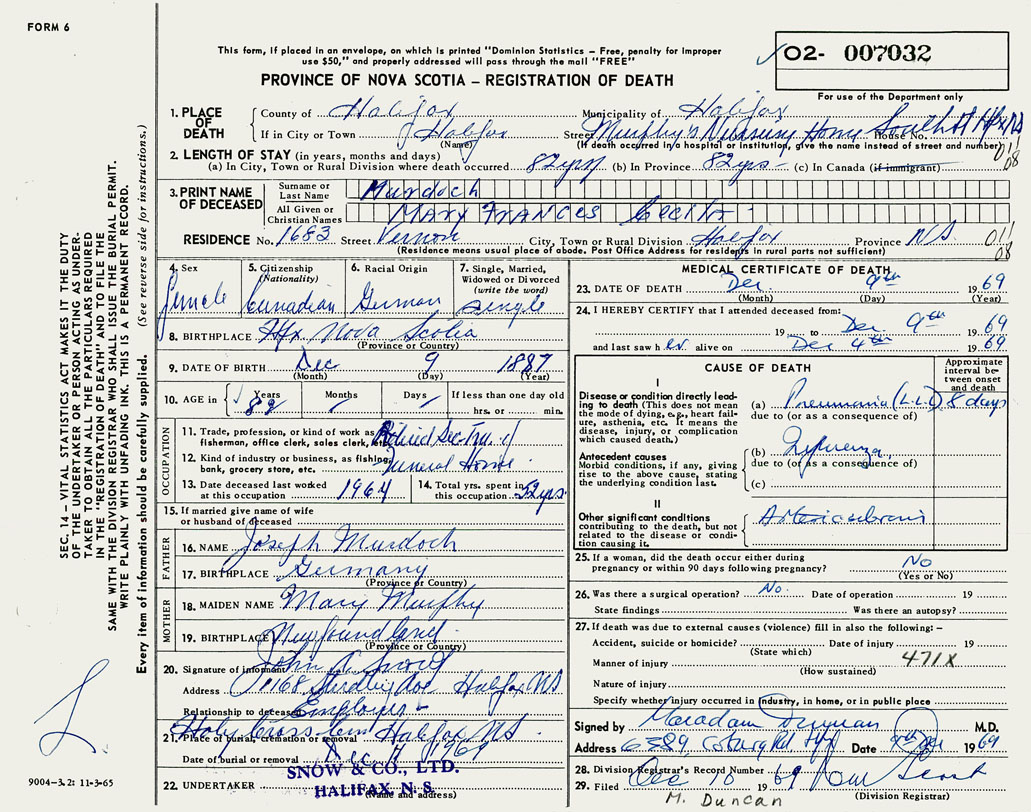 FORM 6
This form, if placed in an envelope, on which is printed "Dominion Statistics – Free, penalty for improper
use $50," and properly addressed will pass through the mail "FREE"
PROVINCE OF NOVA SCOTIA – REGISTRATION OF DEATH
02- 007032
For use of the Department only
1. PLACE OF DEATH
County of Halifax Municipality of Halifax
If in City or Town Halifax Street Murphy's Nursing Home South St Hfx NS House No.
(Name) (If death occurred in a hospital or institution, give the name instead of street and number)
2. LENGTH OF STAY (in years, months and days)
(a) In City, Town or Rural Division where death occurred 82 yrs (b) In Province 82 yrs – (c) In Canada (if immigrant)
01/08
3. PRINT NAME OF DECEASED
Surname or Last Name Murdoch
All Given or Christian Names MARY FRANCES Cecilia
RESIDENCE No. 1683 Street Vernon City, Town or Rural Division Halifax Province N.S. 01/08
(Residence means usual place of abode. Post Office Address for residents in rural parts not sufficient)
4. Sex
female
5. Citizenship (Nationality)
Canadian
6. Racial Origin
German
7. Single, Married, Widowed or Divorced (write the word)
Single
8. BIRTHPLACE Hfx Nova Scotia
(Province or Country)
9. DATE OF BIRTH Dec 9 1887
(Month) (Day) (Year)
10. AGE in Years Months Days If less than one day old
82 hrs. or min.
OCCUPATION
11. Trade, profession, or kind of work as fisherman, office clerk, sales clerk, etc. Retired Sec-Treas. of
12. Kind of industry or business, as fishing, bank, grocery store, etc. Funeral Home
13. Date deceased last worked at this occupation 1964
14. Total yrs. spent in this occupation 52 yrs.
15. If married give name of wife or husband of deceased
FATHER
16. NAME Joseph Murdoch
17. BIRTHPLACE Germany
(Province or Country)
MOTHER
18. MAIDEN NAME Mary Murphy
19. BIRTHPLACE Newfoundland
(Province or Country)
20. Signature of informant John A Snow
Address 1168 Ave Halifax NS
Relationship to deceased Employer –
21. Place of burial, cremation or removal Holy Cross Cem Halifax NS
Date of burial or removal Dec 11 1969
22. UNDERTAKER SNOW & CO., LTD.
HALIFAX, N. S.
(Name and address)
MEDICAL CERTIFICATE OF DEATH
23. DATE OF DEATH Dec. 9th 1969
(Month) (Day) (Year)
24. I HEREBY CERTIFY that I attended deceased from:
19 to Dec 9th 1969
and last saw her alive on Dec 4th 1969
CAUSE OF DEATH
Approximate interval between onset and death
I
Disease or condition directly leading to death (This does not mean the mode of dying, e.g., heart failure, asthenia, etc. It means the disease, injury, or complication which caused death.)
(a) Pneumonia (L.L.L) 8 days
due to (or as a consequence of)
Antecedent causes
Morbid conditions, if any, giving rise to the above cause, stating the underlying condition last.
(b) Influenza
due to (or as a consequence of)
(c)
II
Other significant conditions contributing to the death, but not related to the disease or condition causing it.
25. If a woman, did the death occur either during pregnancy or within 90 days following pregnancy? No
(Yes or No)
26. Was there a surgical operation? No. Date of operation 19
State findings Was there an autopsy?
27. If death was due to external causes (violence) fill in also the following: –
Accident, suicide or homicide? Date of injury 19
(State which)
Manner of injury 471X
(How sustained)
Nature of injury
Specify whether injury occurred in industry, in home, or in public place
Signed by M.D.
Address 6389 Coburg Rd Hfx Date 9th Dec 1969
28. Division Registrar's Record Number
29. Filed Dec 10 1969
(Division Registrar)
M. Duncan
SEC. 14 – VITAL STATISTICS ACT MAKES IT THE DUTY
OF THE UNDERTAKER OR PERSON ACTING AS UNDER-
TAKER TO OBTAIN ALL THE PARTICULARS REQUIRED
IN THE "REGISTRATION OF DEATH" AND TO FILE THE
SAME WITH THE DIVISION REGISTRAR WHO SHALL ISSUE THE BURIAL PERMIT.
WRITE PLAINLY WITH UNFADING INK. THIS IS A PERMANENT RECORD.
Every item of information should be carefully supplied. (See reverse side for instructions.)
9004-3.2: 11-3-65